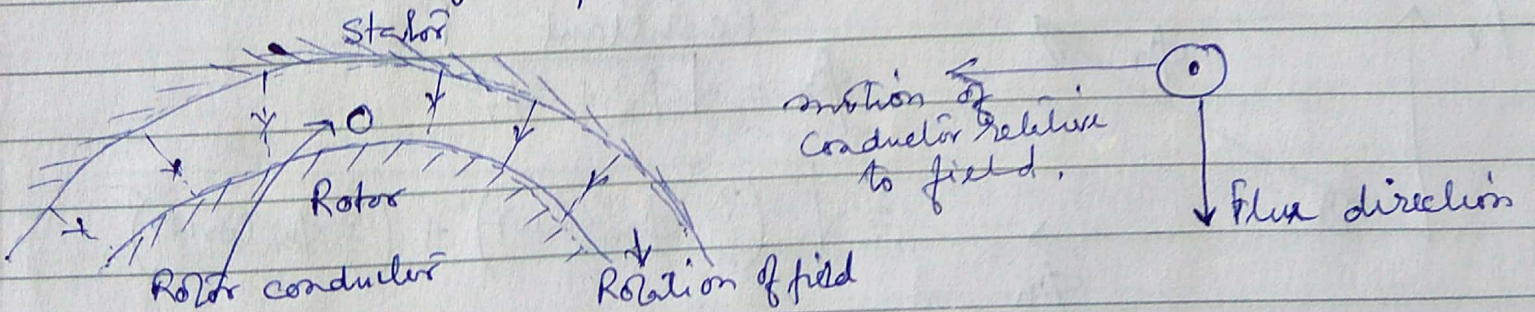 Stator
Rotor
Rotor conductor
Rotation of field
motion of
conductor relative
to field.
Flux direction